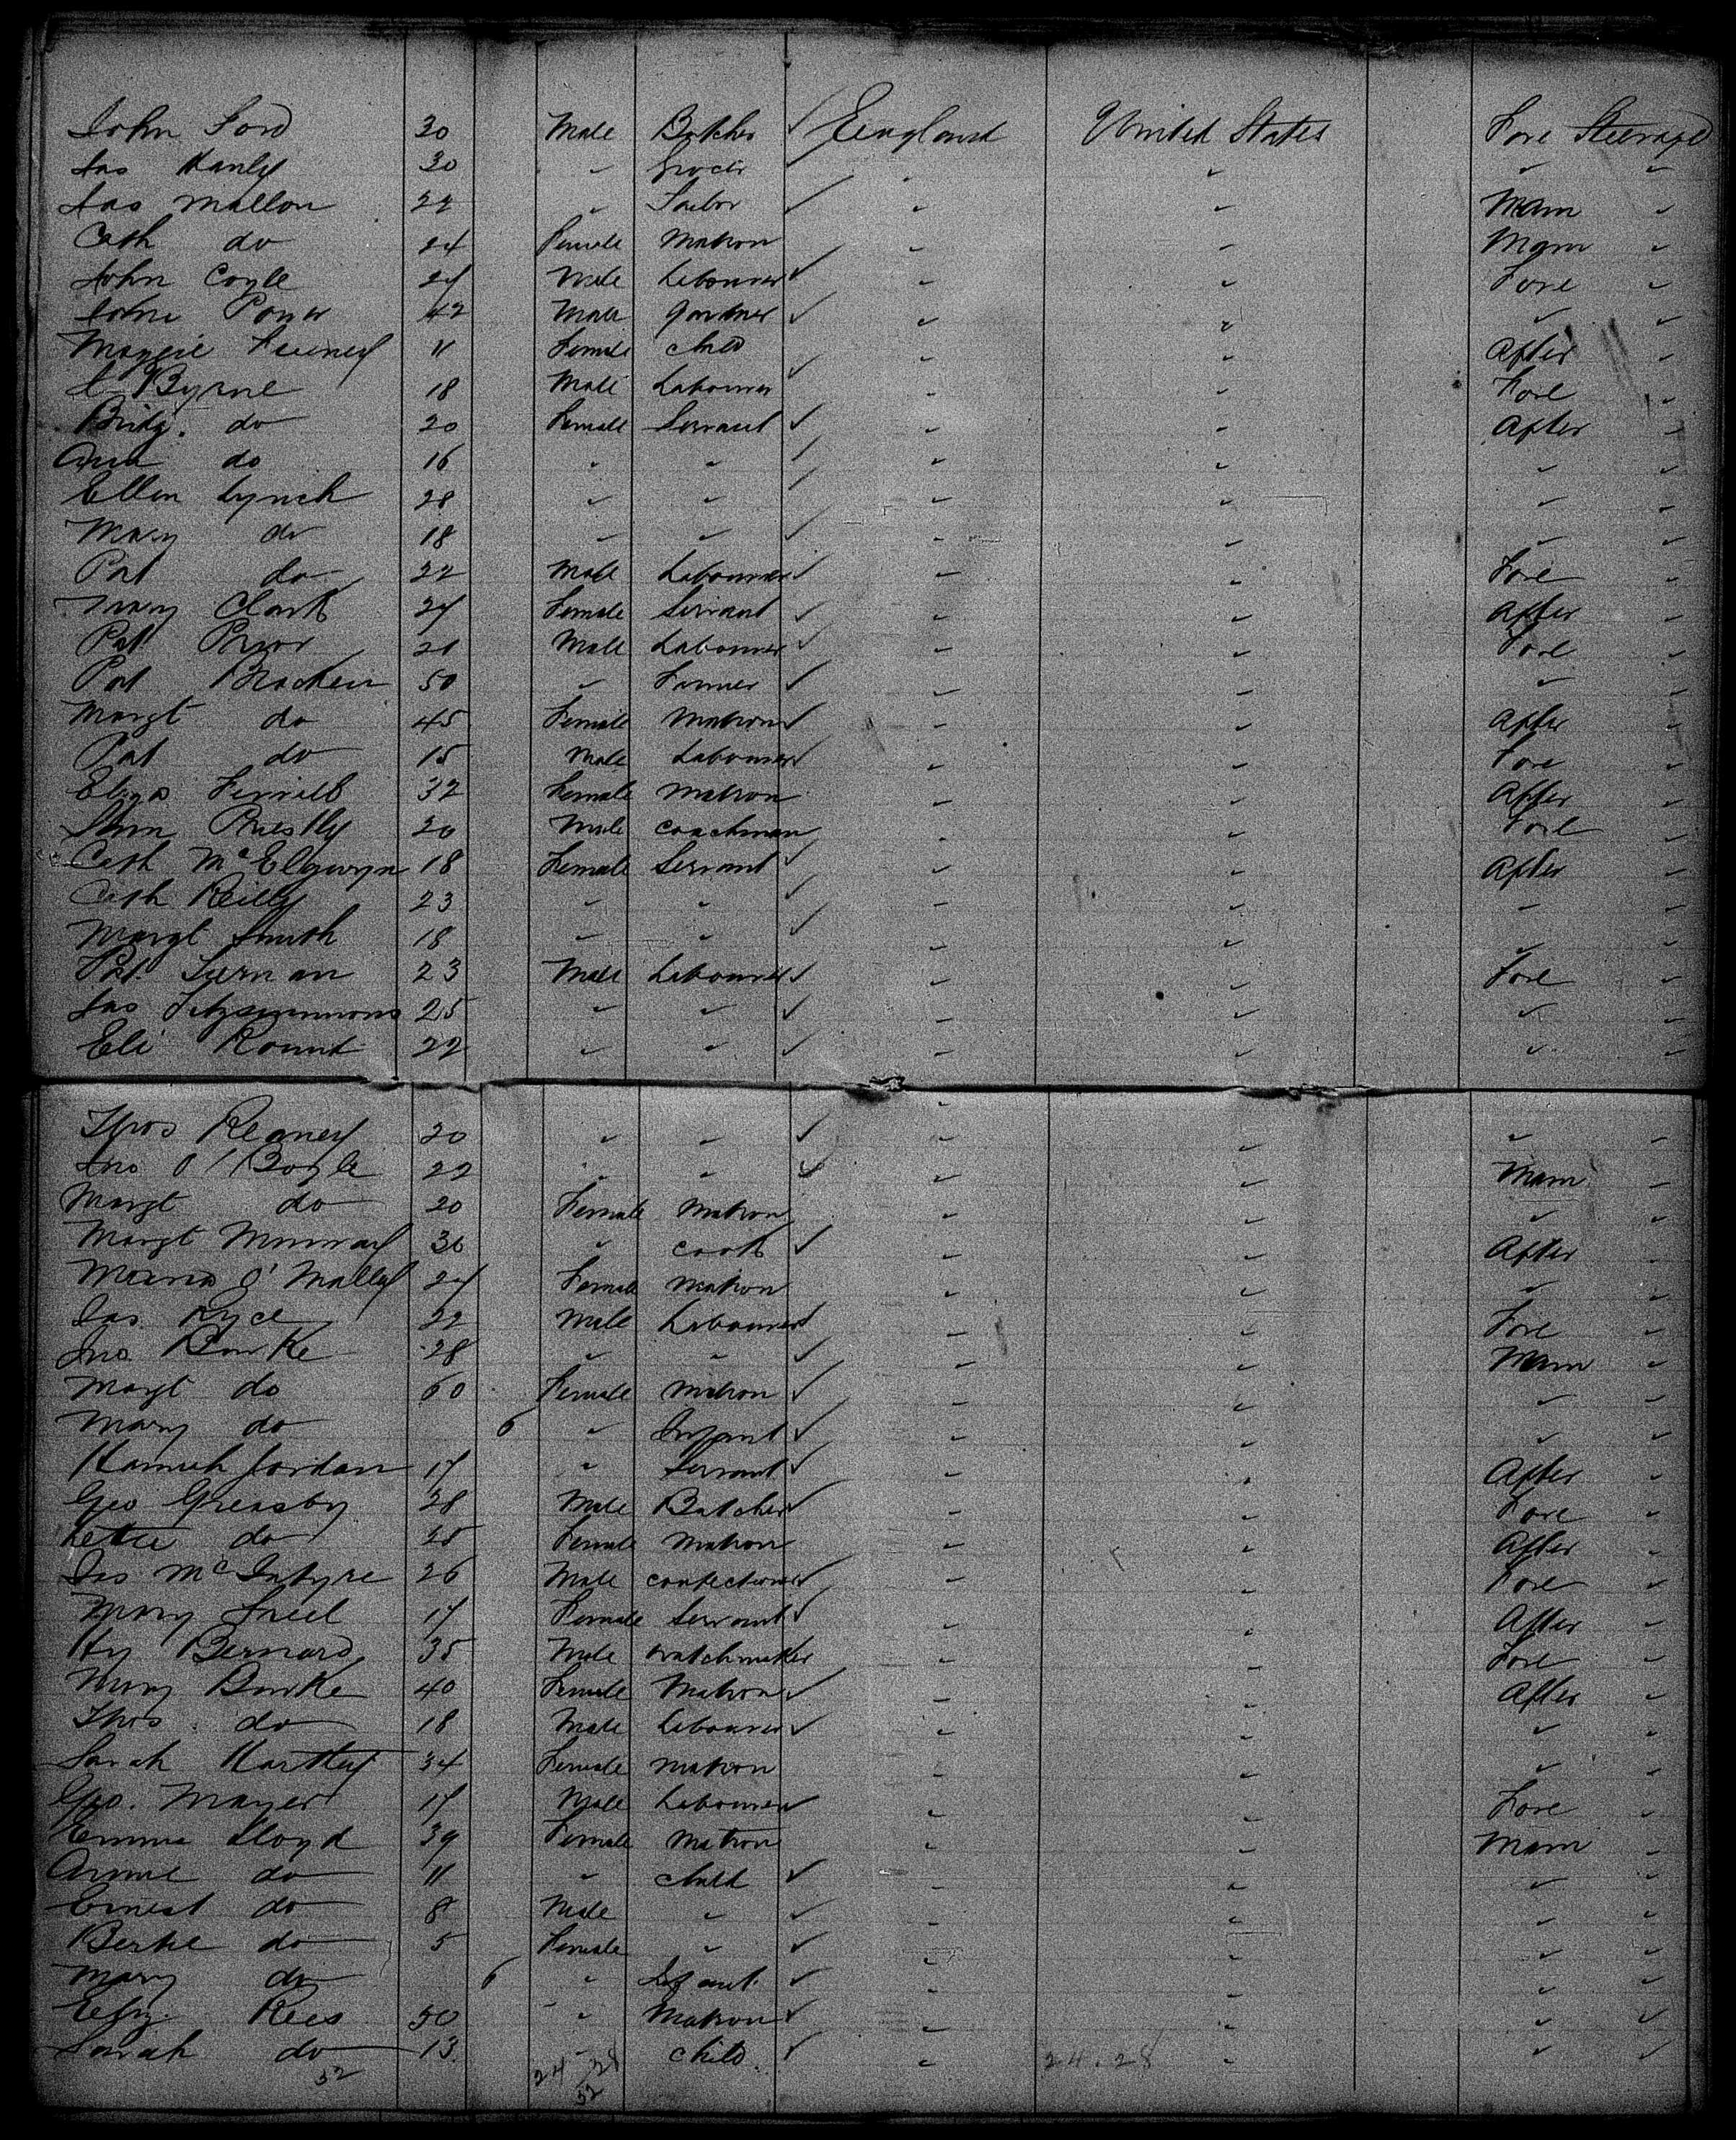 John Ford 30 Male Butcher ✓ England United States Fore Steerage
Jas Hanley 30 " Grocer ✓ " " " "
Jas Mallon 22 " Tailor ✓ " " Main "
Cath do 24 Female Matron " " Main "
John Coyle 24 Male Labourer ✓ " " Fore "
John Power 42 Male Gardner ✓ " " " "
Maggie Feeney 11 Female Child ✓ " " After "
Byrne 18 Male Labourer ✓ " " Fore "
Bridg. do 20 Female Servant ✓ " " After "
Ann do 16 " " ✓ " " " "
Ellen Lynch 28 " " ✓ " " " "
Mary do 18 " " ✓ " " " "
Pat do 22 Male Labourer ✓ " " Fore "
Mary Clark 24 Female Servant ✓ " " After "
Pat Prior 21 Male Labourer ✓ " " Fore "
Pat Bracken 50 " Farmer ✓ " " " "
Margt do 45 Female Matron ✓ " " After "
Pat do 15 Male Labourer ✓ " " Fore "
Eliza 32 Female Matron " " After "
Priestly 20 Male Coachman " " Fore "
Cath McElgwyn 18 Female Servant ✓ " " After "
Cath Reilly 23 " " ✓ " " " "
Margt Smith 18 " " ✓ " " " "
Pat. Tiernan 23 Male Labourer ✓ " " Fore "
Jas Fitzsimmons 25 " " ✓ " " " "
Eli Round 22 " " ✓ " " " "
Thos Reaney 20 " " ✓ " " " "
Jno O'Boyle 22 " " ✓ " " Main "
Margt do 20 Female Matron " " " "
Margt Murray 36 " Cook ✓ " " After "
Maria O'Malley 24 Female Matron " " " "
Jas. Ryce 22 Male Labourer ✓ " " Fore "
Jno. Burke 28 " " ✓ " " Main "
Margt do 60 Female Matron ✓ " " " "
Mary do 6 " Infant ✓ " " " "
Hannah Jordan 17 " Servant ✓ " " After "
Geo Greasby 28 Male Butcher ✓ " " Fore "
Lettie do 25 Female Matron " " After "
Jas McIntyre 26 Male Confectioner ✓ " " Fore "
Mary Freel 17 Female Servant ✓ " " After "
Hy Bernard 35 Male Watchmaker " " Fore "
Mary Burke 40 Female Matron ✓ " " After "
Thos. do 18 Male Labourer ✓ " " " "
Sarah Hartley 34 Female Matron " " " "
Geo. Mayer 17 Male Labourer ✓ " " Fore "
Emma Lloyd 39 Female Matron " " Main "
Annie do 11 " Child ✓ " " " "
Ernest do 8 Male " ✓ " " " "
Bertie do 5 Female " ✓ " " " "
Mary do 6 " Infant. ✓ " " " "
Eliz. Rees 50 " Matron ✓ " " " "
Sarah do 13. " Child. ✓ " " " "
52 24 28 24.28
52